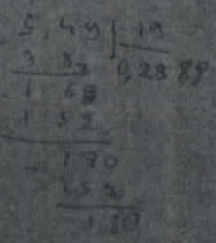 5,49 | 19
3 8 0,288
1 69
1 52
170
152
180